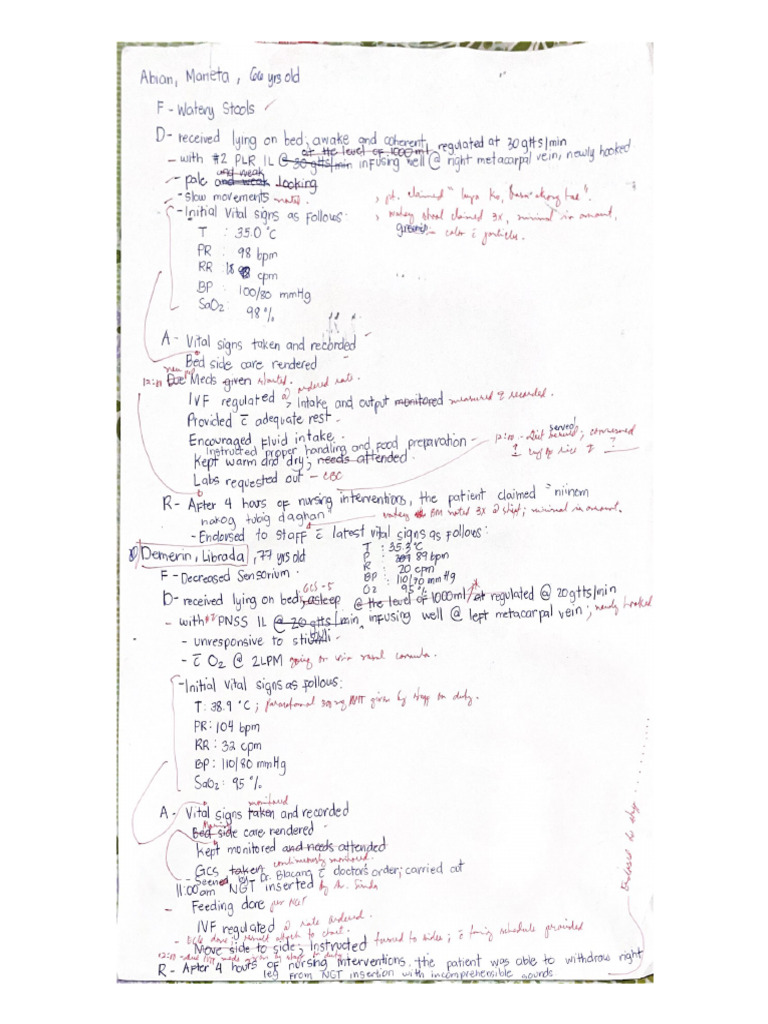 Abian, Marieta, 66 yrs old
F - Watery Stools
D- received lying on bed; awake and coherent, regulated at 30gtts/min
at the level of 1000ml
- with #2 PLR 1L @ 30 gtts/min infusing well @ right metacarpal vein, newly hooked
and weak
- pale and weak looking
- slow movements noted.
> pt. claimed
- Initial Vital signs as follows:
> watery stool claimed 3x, minimal in amount,
T : 35.0 °C
greenish color c̄ particles.
PR : 98 bpm
RR : 18 cpm
BP : 100/80 mmHg
SaO2 : 98 %
A - Vital signs taken and recorded
Bed side care rendered
Due Meds given started.
IVF regulated @ ordered rate. > Intake and output monitored measured & recorded.
Provided c̄ adequate rest.
Encouraged Fluid intake.
served
12:00 - diet
Instructed proper handling and food preparation -
Kept warm and dry; needs attended.
Labs requested out - CBC
R- After 4 hours of nursing interventions, the patient claimed "niinom
nakog tubig daghan"
watery BM noted 3x @ shift; minimal in amount.
- Endorsed to staff c̄ latest vital signs as follows:
Demerin, Librada, 77 yrs old
T : 35.3°C
P : 89 bpm
R : 20 cpm
BP : 110/70 mmHg
O2 : 95 %
F - Decreased Sensorium.
GCS - 5
D- received lying on bed; asleep @ the level of 1000ml at regulated @ 20gtts/min
- with #2 PNSS 1L @ 20 gtts/min, infusing well @ left metacarpal vein; newly hooked
- unresponsive to stimuli
- c̄ O2 @ 2LPM going on via nasal cannula.
- Initial Vital signs as follows:
T: 38.9 °C; paracetamol 300mg given by staff on duty.
PR: 104 bpm
RR: 32 cpm
BP: 110/80 mmHg
SaO2: 95 %
monitored
A - Vital signs taken and recorded
Bed side care rendered
Kept monitored and needs attended
continuously monitored.
GCS taken
- Seened by Dr. Blacang c̄ doctors order; carried out
11:00am NGT inserted by
Endorsed to staff
- Feeding done per NGT
IVF regulated @ rate ordered.
- ECG done; result attach to chart.
Move side to side; Instructed turned to sides; c̄ turning schedule provided
R - After 4 hours of nursing interventions, the patient was able to withdraw right
leg from NGT insertion with incomprehensible sounds